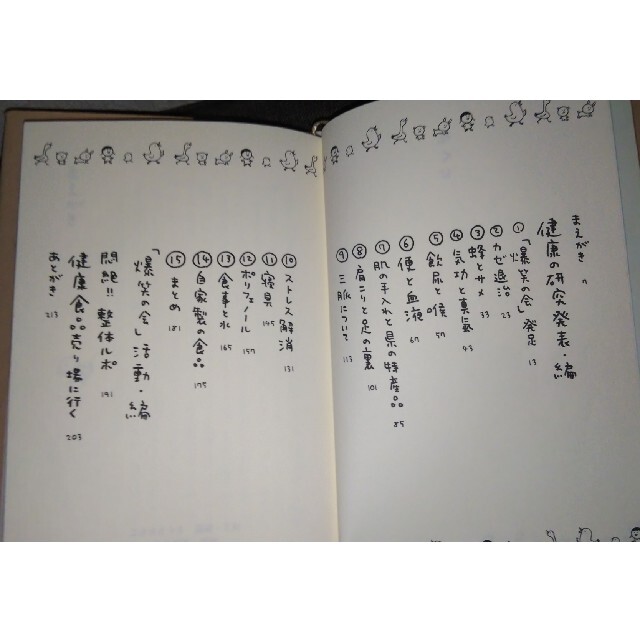 まえがき 7
健康の研究発表・編
① 「爆笑の会」発足 13
② カゼ退治 23
③ 蜂とサメ 33
④ 気功と真気 43
⑤ 飲尿と喉 57
⑥ 便と血液 67
⑦ 肌の手入れと県の特産品 85
⑧ 肩こりと足の裏 101
⑨ 三脈について 113
⑩ ストレス解消 131
⑪ 寝具 145
⑫ ポリフェノール 157
⑬ 食事と水 165
⑭ 自家製の食品 175
⑮ まとめ 181
「爆笑の会」活動・編
悶絶!! 整体ルポ 191
健康食品売り場に行く 203
あとがき 213